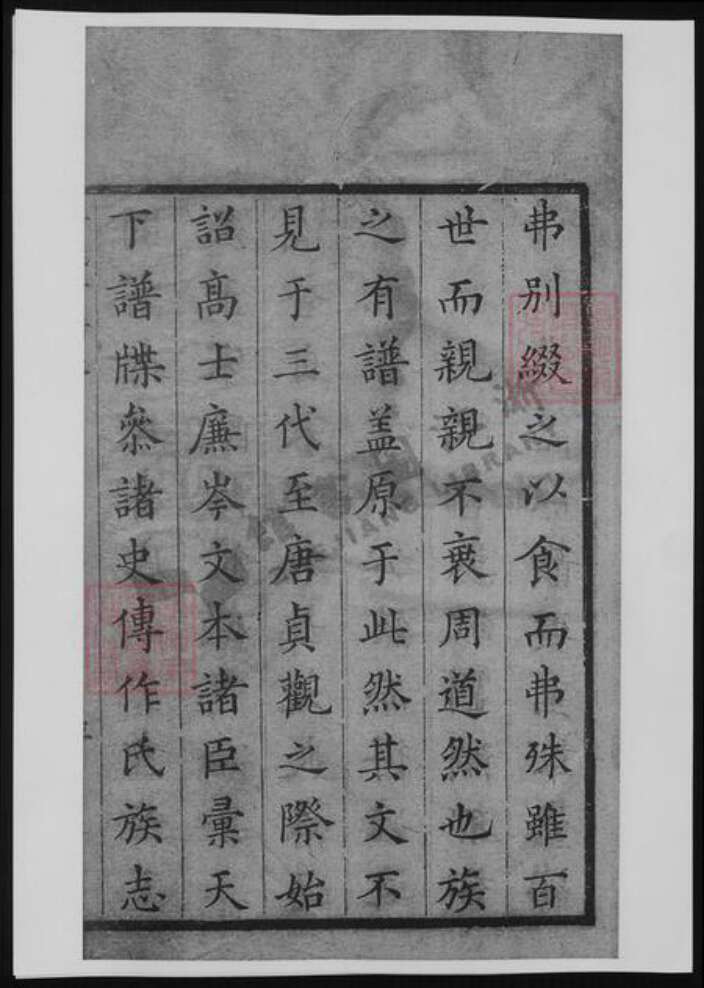 弗别綴之以食而弗殊雖百
世而親親不衰周道然也族
之有譜盖原于此然其文不
見于三代至唐貞觀之際始
詔髙士廉岑文本諸臣彚天
下譜牒叅諸史傳作氏族志